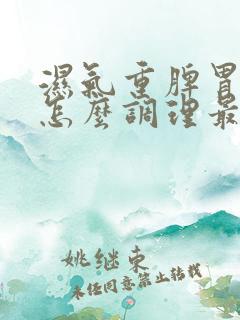 濕氣重脾胃
怎麼調理最
姚继东
未经同意禁止转载